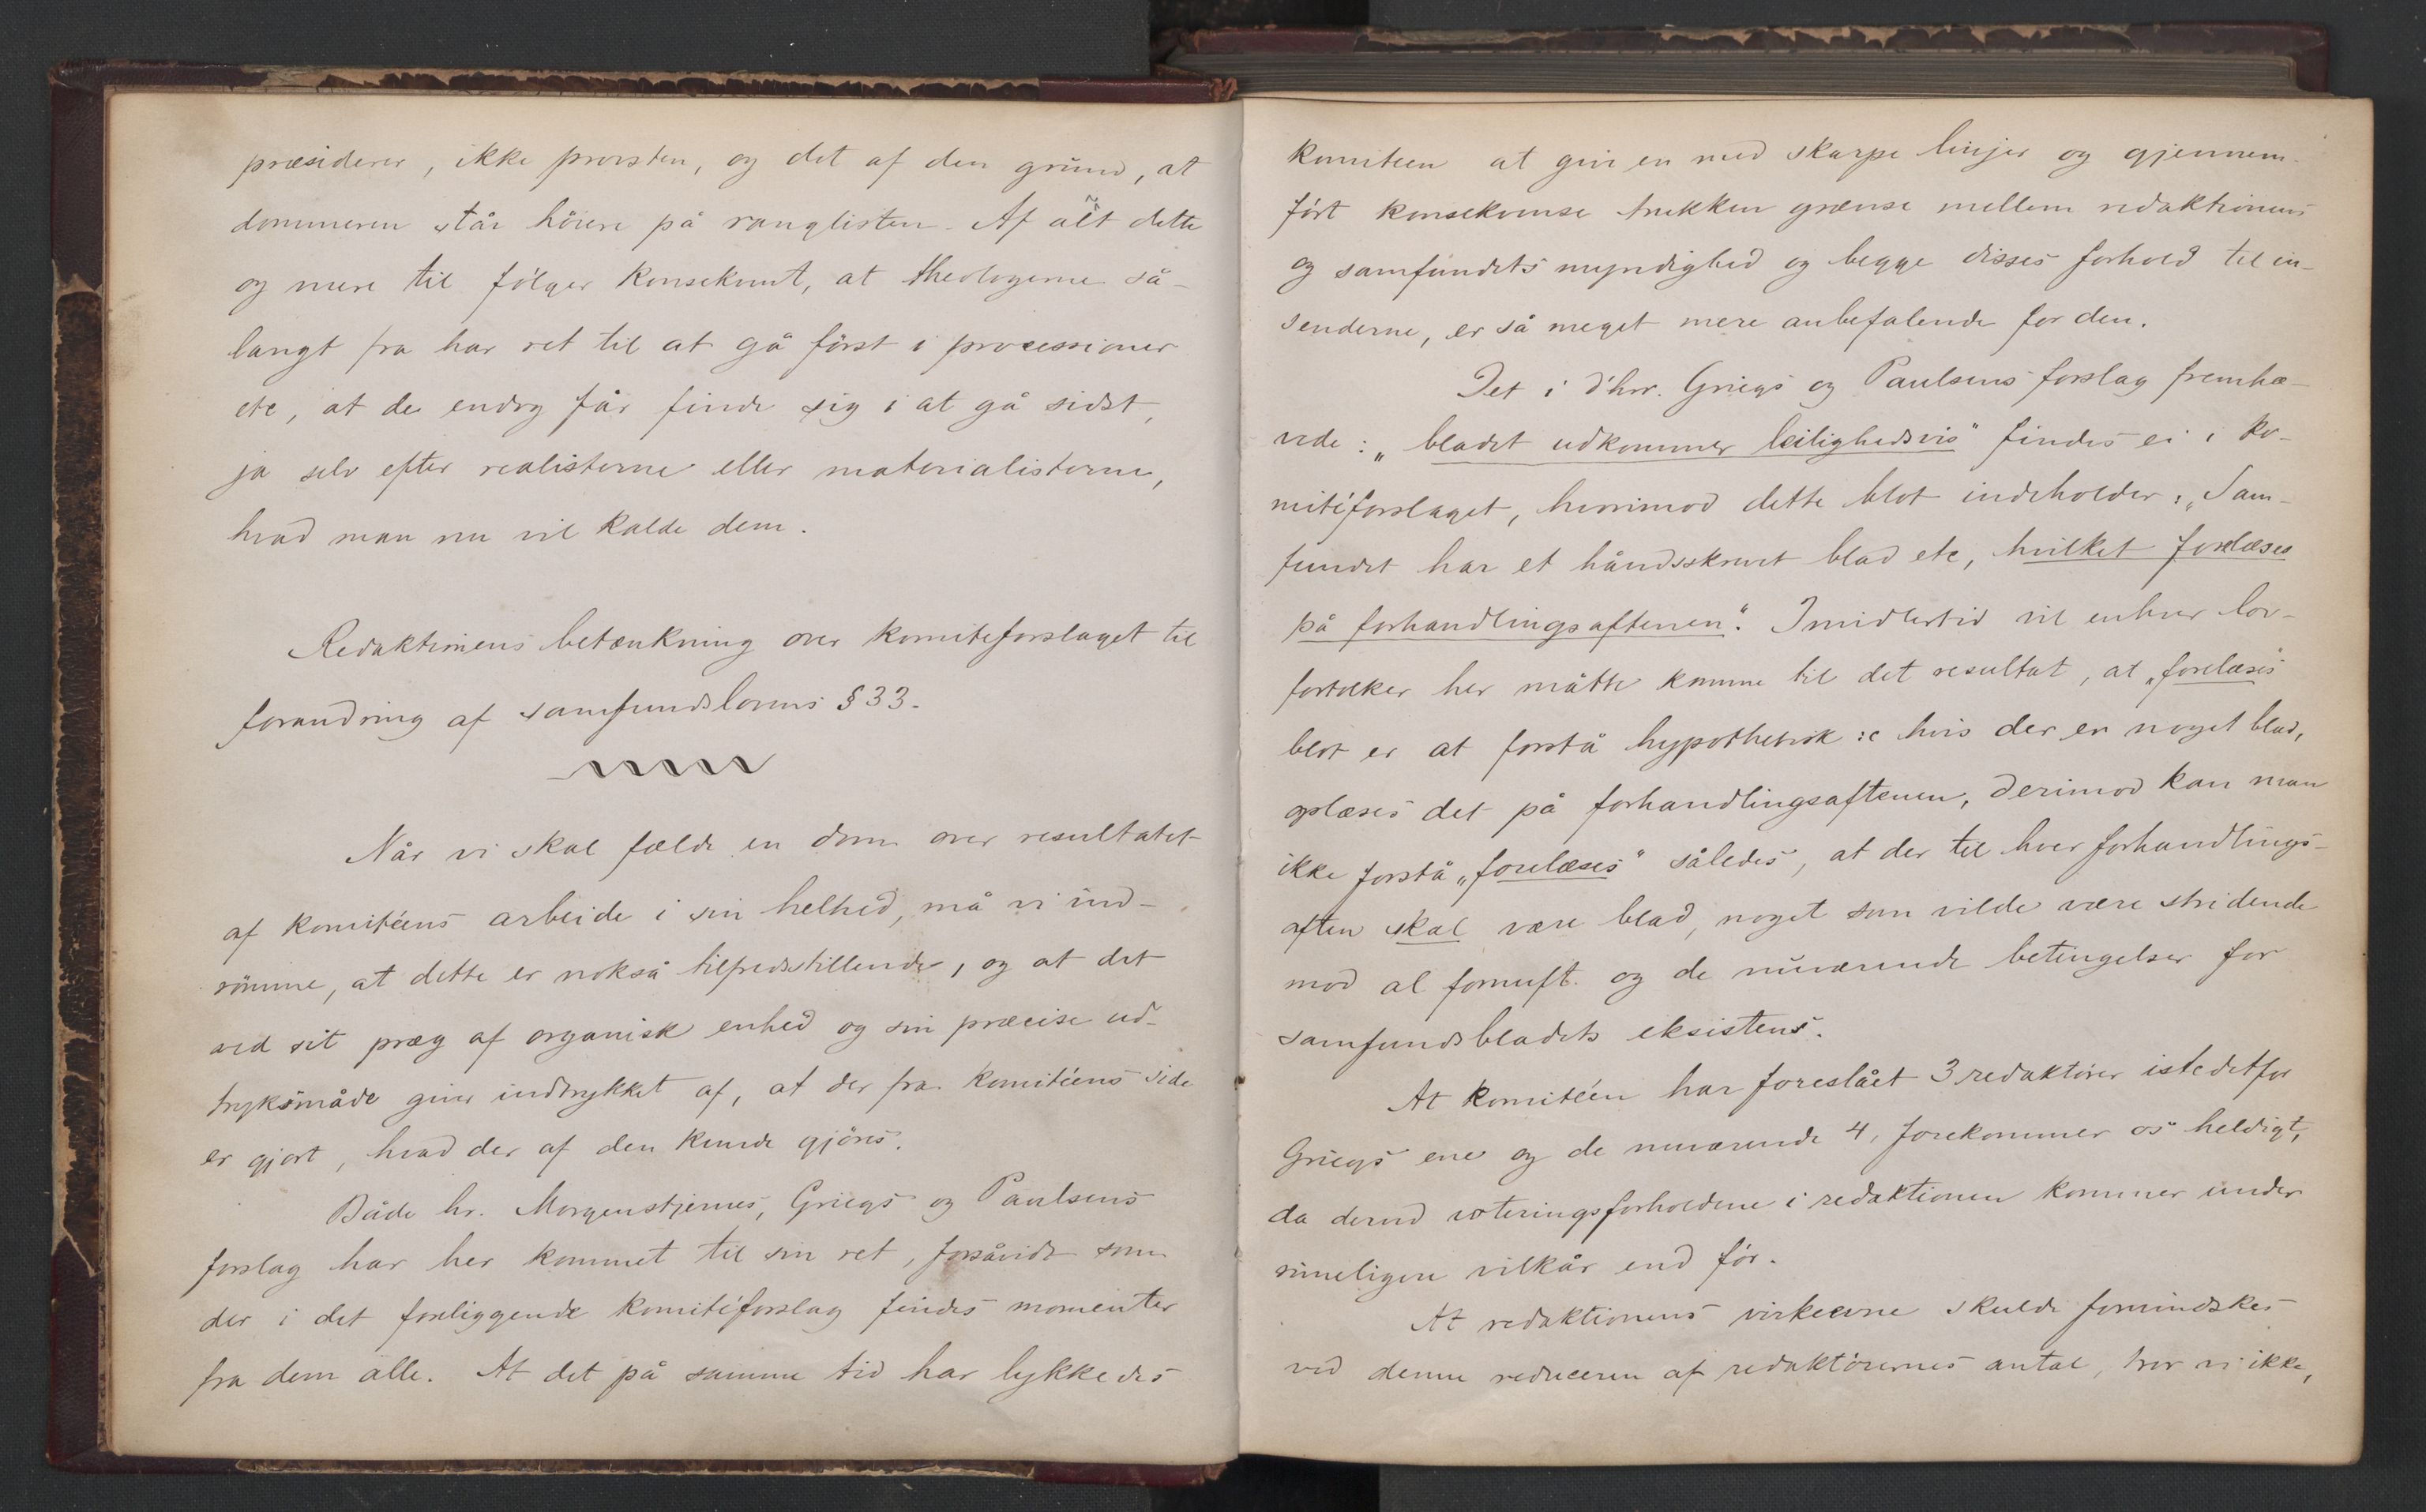 præsiderer, ikke provsten, og det af den grund, at
dommeren står höiere på ranglisten. Af alt dette
og mere til fölger konsekvent, at theologerne så-
langt fra har ret til at gå först i processioner
etc, at de endog får finde sig i at gå sidst,
ja selv efter realisterne eller materialisterne,
hvad man nu vil kalde dem.
Redaktionens betænkning over komiteforslaget til
forandring af samfundslovens § 33.
Når vi skal fælde en dom over resultatet
af komitéens arbeide i sin helhed, må vi ind-
römme, at dette er nokså tilfredsstillende, og at det
ved sit præg af organisk enhed og sin præcise ud-
tryksmåde giver indtrykket af, at der fra komitéens side
er gjort, hvad der af den kunde gjöres.
Både hr. Morgenstjernes, Griegs og Paulsens
forslag har her kommet til sin ret, forsåvidt som
der i det foreliggende komitéforslag findes momenter
fra dem alle. At det på samme tid har lykkedes
komiteen at give en med skarpe linjer og gjennem-
fört konsekvense trukken grænse mellem redaktionens
og samfundets myndighed og begge disses forhold til in-
senderne, er så meget mere anbefalende for den.
Det i d'hrr. Griegs og Paulsens forslag fremhæ-
vede: „bladet udkommer leilighedsvis" findes ei i ko-
mitéforslaget, hvorimod dette blot indeholder: „Sam-
fundet har et håndsskrevet blad etc, hvilket forelæses
på forhandlingsaftenen". Imidlertid vil enhver lov-
fortolker her måtte komme til det resultat, at „forelæses"
blot er at forstå hypothetisk ɔ: hvis der er noget blad,
oplæses det på forhandlingsaftenen, derimod kan man
ikke forstå „forelæses" således, at der til hver forhandlings-
aften skal være blad, noget som vilde være stridende
mod al fornuft og de nuværende betingelser for
samfundsbladets eksistens.
At komitéen har foreslået 3 redaktörer istedetfor
Griegs ene og de nuværende 4, forekommer os heldigt,
da derved voteringsforholdene i redaktionen kommer under
rimeligere vilkår end för.
At redaktionens virkeevne skulde formindskes
ved denne reduceren af redaktörernes antal, tror vi ikke,